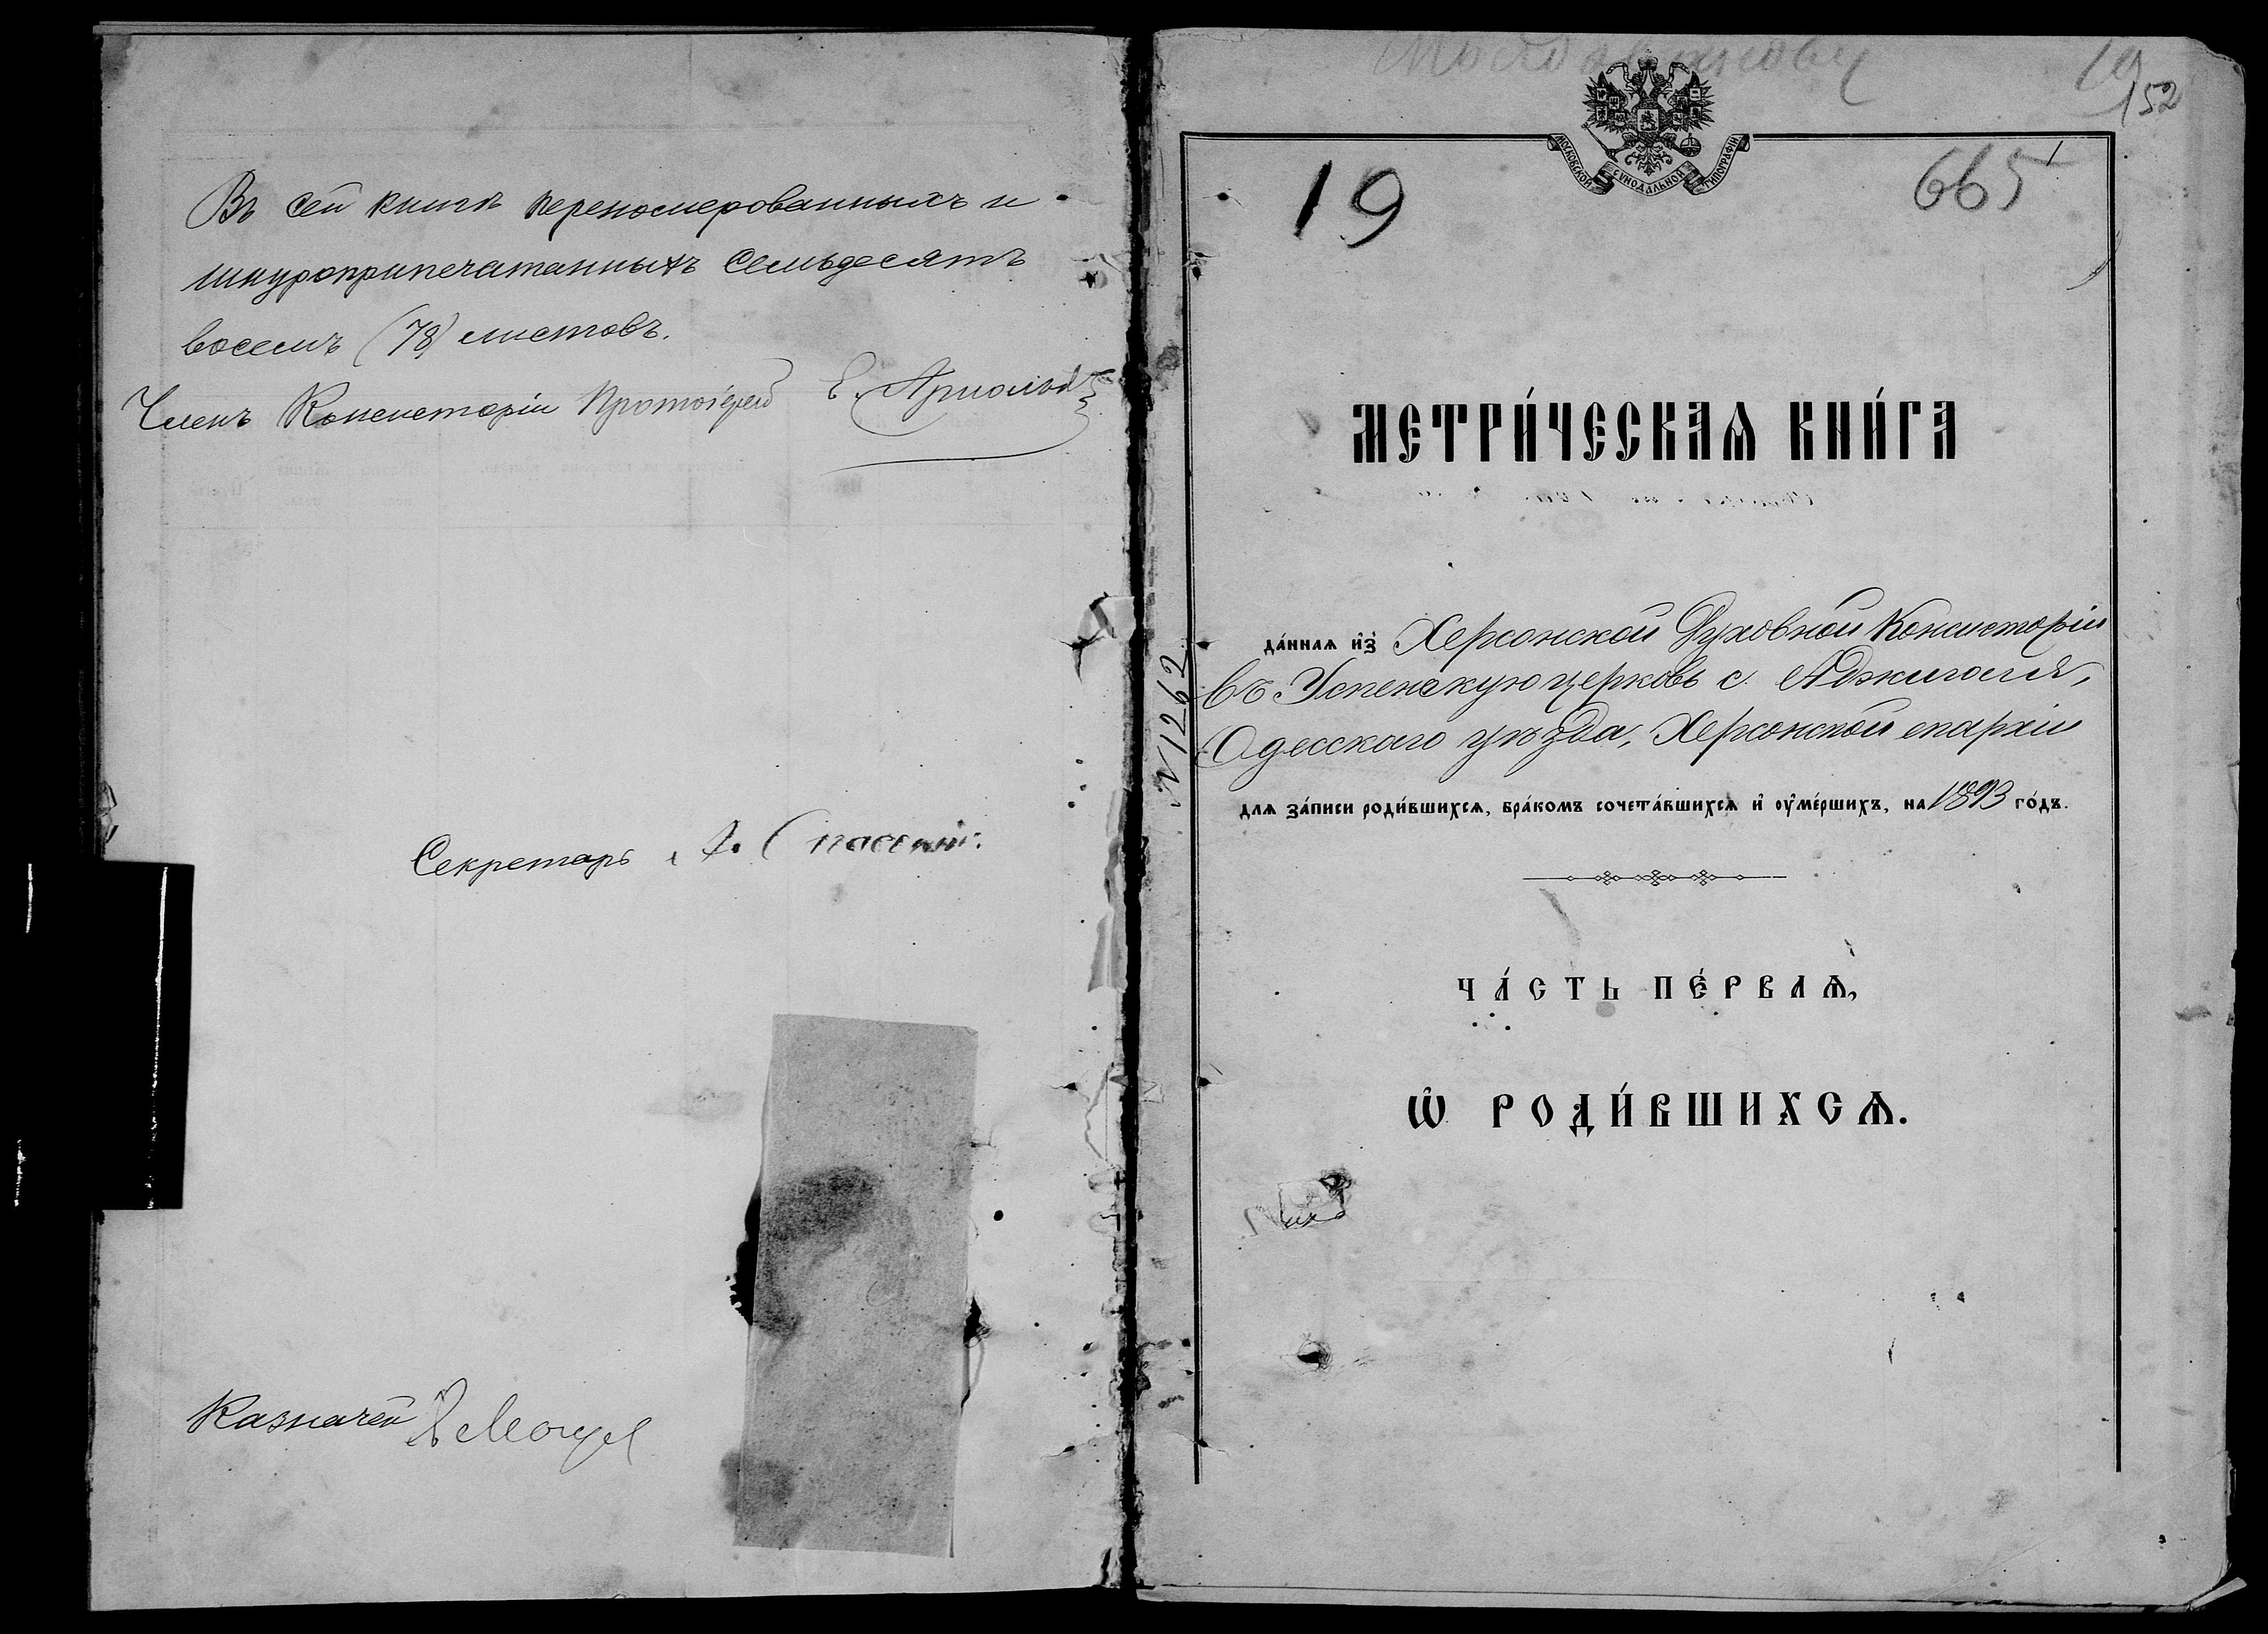 Въ сей книгѣ перенсмерованныхъ и
шнуроприпечатанныхъ семьдесятъ
восемь (78) листовъ.
Членъ Консисторіи Протоіерей Е. Арнольд
Секретарь
Казначей
19
152
МОСКОВСКОЙ СѴНОДАЛЬНОЙ ТИПОГРАФІИ
19
665
МЕТРИ́ЧЕСКАѦ КНИ́ГА
да́ннаѧ и҆зъ Херсонской Духовной Консисторіи
въ Успенскую церковь с. Аджигола,
Одесскаго уѣзда, Херсонской епархіи
длѧ за́писи роди́вшихсѧ, бра́комъ сочета́вшихсѧ и҆ ᲂу҆ме́ршихъ, на 1893 го́дъ.
N 1262
ЧА́СТЬ ПЕ́РВАѦ,
Ѽ РОДИ́ВШИХСѦ.